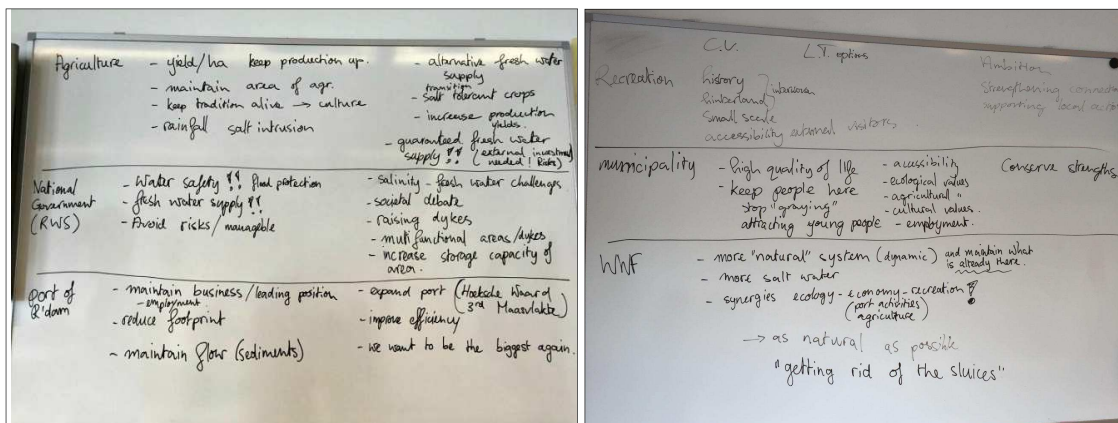 Agriculture - yield/ha keep production up.
- maintain area of agr.
- keep tradition alive → culture
- rainfall salt intrusion
- alternative fresh water
supply
transition
- salt tolerant crops
- increase production
yields.
- guaranteed fresh water
supply !! (external investment
needed! Risks)
National
Government
(RWS)
- Water safety !! flood protection
- fresh water supply !!
- Avoid risks/manageble
- salinity - fresh water challenges
- societal debate
- raising dykes
- multifunctional areas/dykes
- increase storage capacity of
area.
Port of
R'dam
- maintain business/leading position
- employment.
- reduce footprint
- maintain flow (sediments)
- expand port (Hoeksche Waard
3rd Maasvlakte)
- improve efficiency
- we want to be the biggest again.
C.V. L.T. options Ambition
Recreation
history
hinterland
} interwoven
small scale
accessibility external visitors.
strengthening
supporting local
municipality
- high quality of life
- keep people here
stop "graying"
attracting young people
- accessibility
- ecological values
- agricultural "
- cultural values.
- employment.
Conserve strengths
WNF
- more "natural" system (dynamic) and maintain what
is already there.
- more salt water
- synergies ecology - economy - recreation !
(port activities
agriculture)
→ as natural as possible
"getting rid of the sluices"